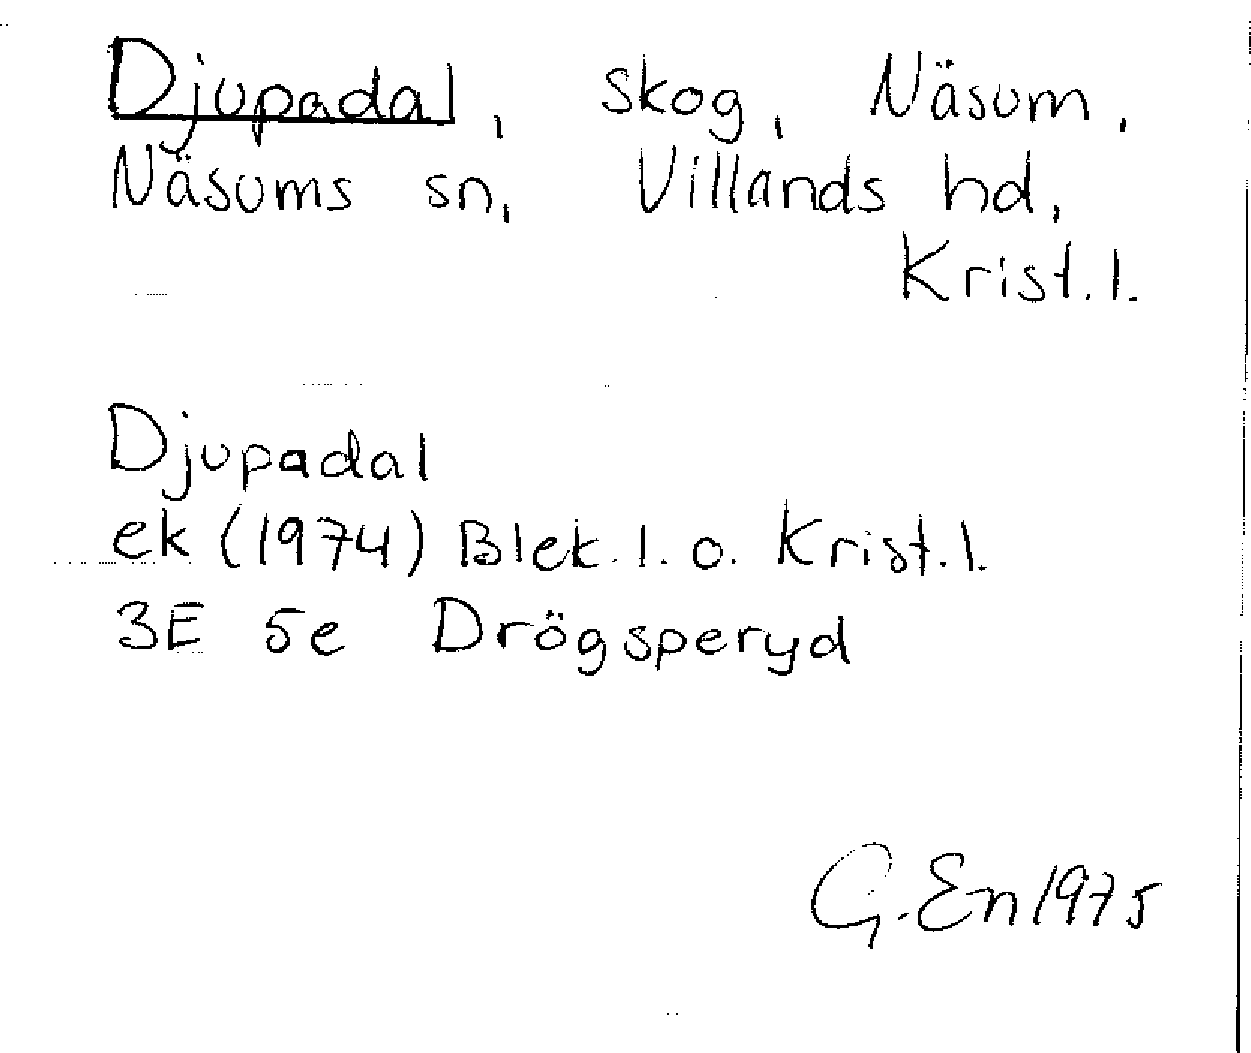 Djupadal, skog, Näsum,
Näsums sn, Villands hd,
Krist.l.
Djupadal
ek (1974) Blek.l. o. Krist.l.
3E 5e Drögsperyd
G.En 1975